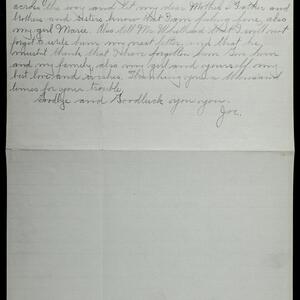 across the way and let my dear Mother & Father and
Brothers and Sisters know that I am feeling fine, also
my girl Marie. Also tell Mr. that I will not
forget to write him my next letter, and that he
mustn't think that I have forgotten him. Give him
and my family, also my girl and yourself my
best love and wishes. Thanking you a thousand
times for your trouble.
Goodbye and Goodluck to you.
Joe.